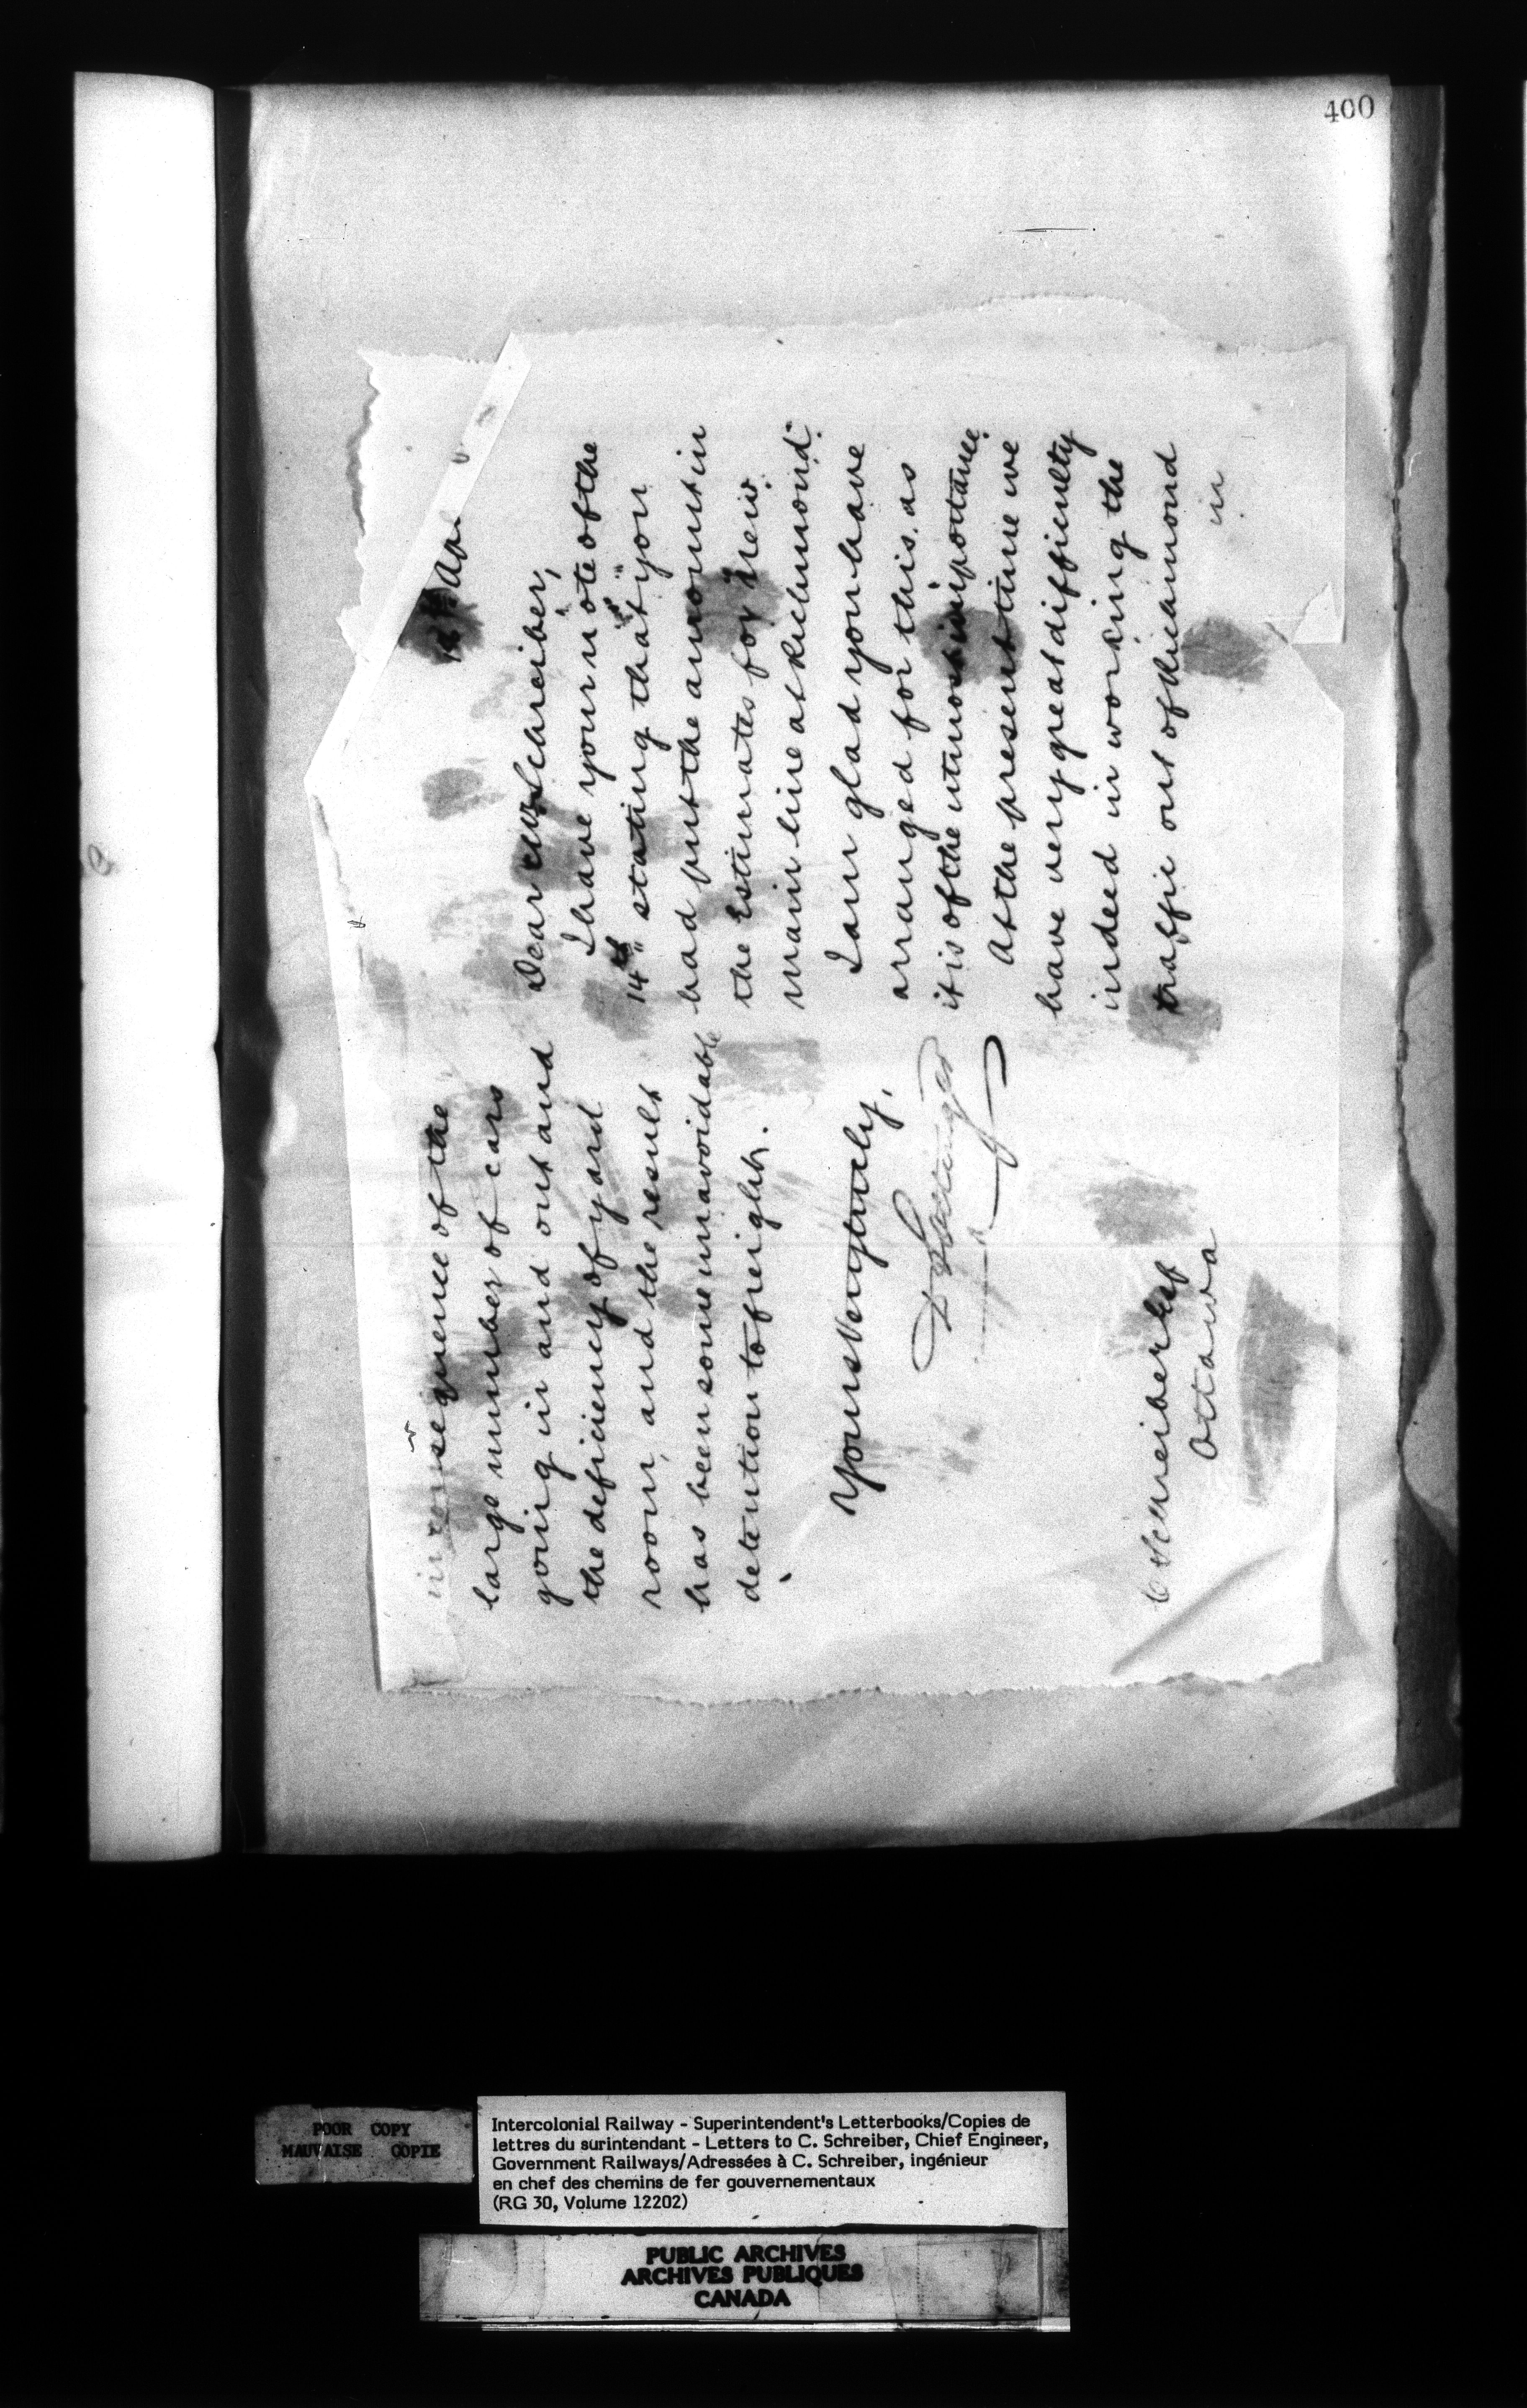 400
Apl
Dear Mr Schreiber,
I have your note of the
14th stating that "you
had put the amount in
the Estimates for "new
main line at Richmond".
I am glad you have
arranged for this, as
it is of the utmost importance.
At the present time we
have very great difficulty
indeed in working the
traffic out of Richmond
in
in consequence of the
large number of cars
going in and out and
the deficiency of yard
room, and the result
has been some unavoidable
detention to freight.
Yours very truly,
D Pottinger
C Schreiber Esq
Ottawa
POOR COPY
MAUVAISE COPIE
Intercolonial Railway - Superintendent's Letterbooks/Copies de
lettres du surintendant - Letters to C. Schreiber, Chief Engineer,
Government Railways/Adressées à C. Schreiber, ingénieur
en chef des chemins de fer gouvernementaux
(RG 30, Volume 12202)
PUBLIC ARCHIVES
ARCHIVES PUBLIQUES
CANADA